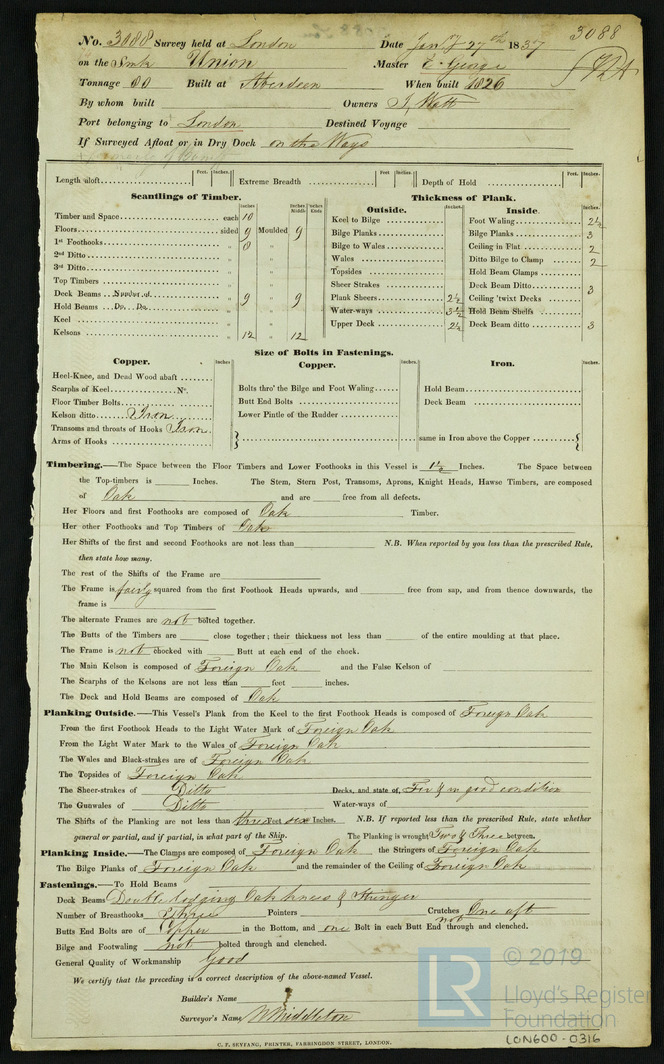 3088
No. 3088 Survey held at London Date Jany 27th 1837
on the Smk Union Master E. George
Tonnage 80 Built at Aberdeen When built 1826
By whom built Owners J. Watt
Port belonging to London Destined Voyage
If Surveyed Afloat or in Dry Dock on the Ways
Feet. Inches. Feet Inches. Feet. Inches.
Length aloft Extreme Breadth Depth of Hold
Scantlings of Timber. Thickness of Plank.
Inches Inches Middle Inches Ends Outside. Inches. Inside. Inches.
Timber and Space each 10 Keel to Bilge Foot Waling 2½
Floors sided 9 Moulded 9 Bilge Planks Bilge Planks 3
1st Foothooks " 8 " Bilge to Wales Ceiling in Flat 2
2nd Ditto " " Wales Ditto Bilge to Clamp 2
3rd Ditto " " Topsides Hold Beam Clamps
Top Timbers " " Sheer Strakes Deck Beam Ditto 3
Deck Beams " 9 " 9 Plank Sheers 2½ Ceiling 'twixt Decks
Hold Beams Do. Do. " " Water-ways 3½ Hold Beam Shelfs
Keel " " Upper Deck 2½ Deck Beam ditto 3
Kelsons " 12 " 12
Size of Bolts in Fastenings.
Copper. Inches Copper. Inches Iron. Inches.
Heel-Knee, and Dead Wood abaft
Scarphs of Keel No. Bolts thro' the Bilge and Foot Waling Hold Beam
Floor Timber Bolts Butt End Bolts Deck Beam
Kelson ditto Iron Lower Pintle of the Rudder
Transoms and throats of Hooks Iron
Arms of Hooks same in Iron above the Copper
Timbering.—The Space between the Floor Timbers and Lower Foothooks in this Vessel is 1½ Inches. The Space between
the Top-timbers is Inches. The Stem, Stern Post, Transoms, Aprons, Knight Heads, Hawse Timbers, are composed
of Oak and are free from all defects.
Her Floors and first Foothooks are composed of Oak Timber.
Her other Foothooks and Top Timbers of Oak
Her Shifts of the first and second Foothooks are not less than N.B. When reported by you less than the prescribed Rule,
then state how many.
The rest of the Shifts of the Frame are
The Frame is fairly squared from the first Foothook Heads upwards, and free from sap, and from thence downwards, the
frame is
The alternate Frames are not bolted together.
The Butts of the Timbers are close together; their thickness not less than of the entire moulding at that place.
The Frame is not chocked with Butt at each end of the chock.
The Main Kelson is composed of Foreign Oak and the False Kelson of
The Scarphs of the Kelsons are not less than feet inches.
The Deck and Hold Beams are composed of Oak
Planking Outside.—This Vessel's Plank from the Keel to the first Foothook Heads is composed of Foreign Oak
From the first Foothook Heads to the Light Water Mark of Foreign Oak
From the Light Water Mark to the Wales of Foreign Oak
The Wales and Black-strakes are of Foreign Oak
The Topsides of Foreign Oak
The Sheer-strakes of Ditto Decks, and state of, Fir & in good condition
The Gunwales of Ditto Water-ways of
The Shifts of the Planking are not less than three Feet six Inches. N.B. If reported less than the prescribed Rule, state whether
general or partial, and if partial, in what part of the Ship. The Planking is wrought Two & Three between.
Planking Inside.—The Clamps are composed of Foreign Oak the Stringers of Foreign Oak
The Bilge Planks of Foreign Oak and the remainder of the Ceiling of Foreign Oak
Fastenings.—To Hold Beams
Deck Beams Double lodging Oak knees & Stringer
Number of Breasthooks Three Pointers Crutches One aft
Butts End Bolts are of Copper in the Bottom, and one Bolt in each Butt End not through and clenched.
Bilge and Footwaling not bolted through and clenched.
General Quality of Workmanship Good
We certify that the preceding is a correct description of the above-named Vessel.
Builder's Name
Surveyor's Name W Middleton
C. F. SEYFANG, PRINTER, FARRINGDON STREET, LONDON.
LR © 2019
Lloyd's Register
Foundation
LON600-0316